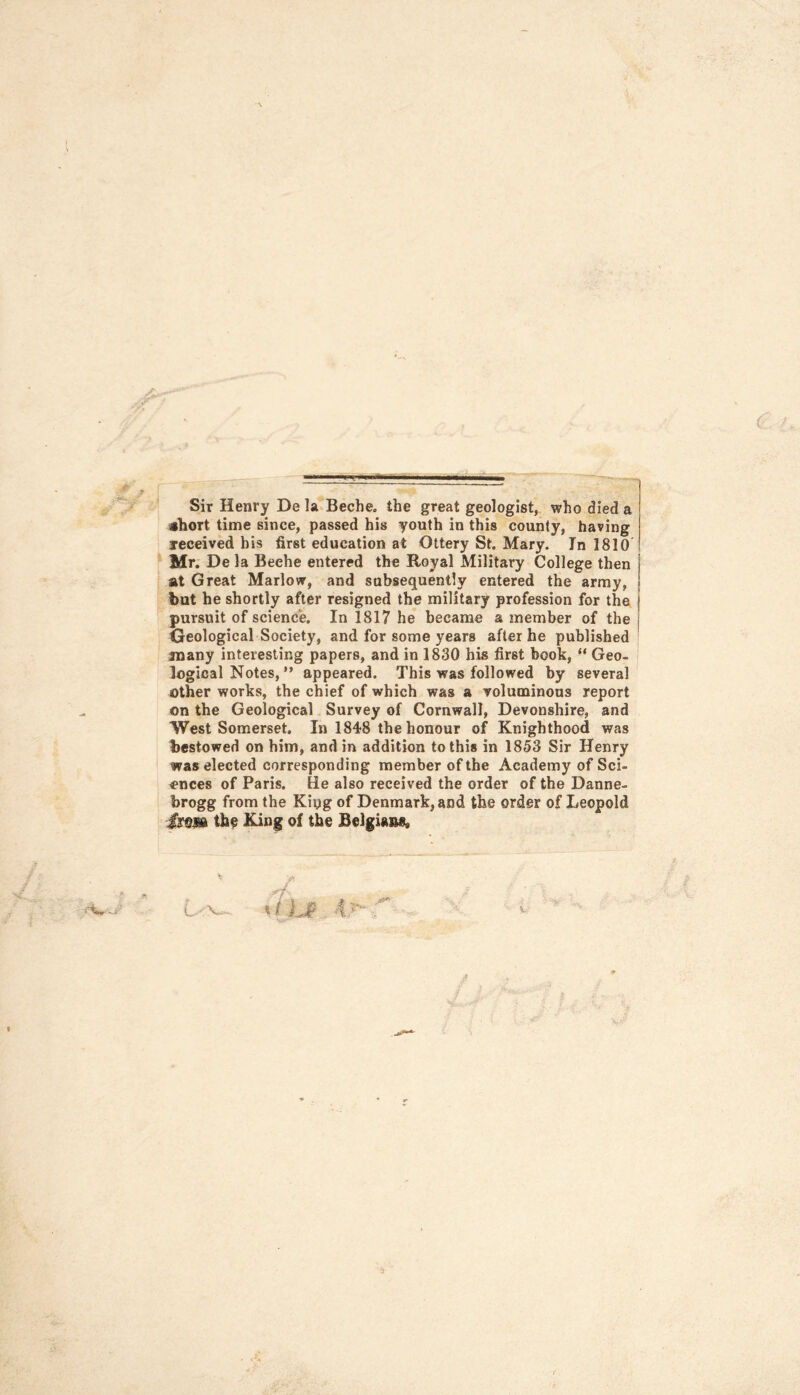 Sir Henry De la Beche. the great geologist, who died a
short time since, passed his youth in this county, having
received his first education at Ottery St. Mary. In 1810
Mr. De la Beche entered the Royal Military College then
at Great Marlow, and subsequently entered the army,
but he shortly after resigned the military profession for the
pursuit of science. In 1817 he became a member of the
Geological Society, and for some years after he published
many interesting papers, and in 1830 his first book, “ Geo-
logical Notes, ” appeared. This was followed by several
other works, the chief of which was a voluminous report
on the Geological Survey of Cornwall, Devonshire, and
West Somerset. In 1848 the honour of Knighthood was
bestowed on him, and in addition to this in 1853 Sir Henry
was elected corresponding member of the Academy of Sci-
ences of Paris. He also received the order of the Danne-
brogg from the King of Denmark, and the order of Leopold
from the King of the Belgians.